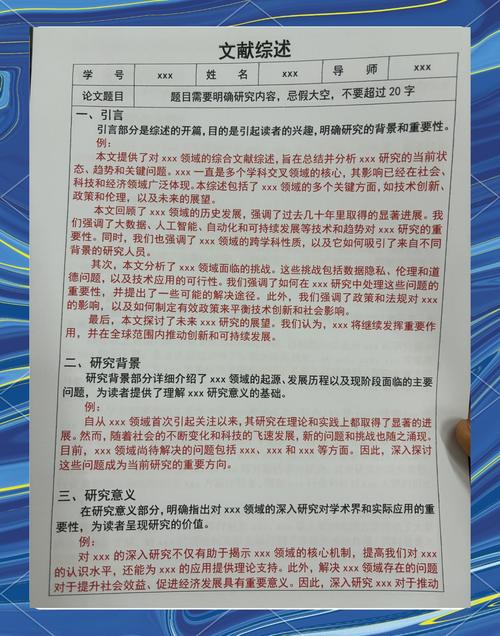 文献综述
学 号 xxx 姓 名 xxx 导 师 xxx
论文题目 题目需要明确研究内容，忌假大空，不要超过 20 字
一、引言
引言部分是综述的开篇，目的是引起读者的兴趣，明确研究的背景和重要性。
例：
本文提供了对 xxx 领域的综合文献综述，旨在总结并分析 xxx 研究的当前状
态、趋势和关键问题。xxx 一直是多个学科交叉领域的核心，其影响已经在社会、
科技和经济领域广泛体现。本综述包括了 xxx 领域的多个关键方面，如技术创新、
政策和伦理，以及未来的展望。
本文回顾了 xxx 领域的历史发展，强调了过去几十年里取得的显著进展。我
们强调了大数据、人工智能、自动化和可持续发展等技术和趋势对 xxx 研究的重
要性。同时，我们也强调了 xxx 领域的跨学科性质，以及它如何吸引了来自不同
背景的研究人员。
其次，本文分析了 xxx 领域面临的挑战。这些挑战包括数据隐私、伦理和道
德问题，以及技术应用的可行性。我们强调了如何在 xxx 研究中处理这些问题的
重要性，并提出了一些可能的解决途径。此外，我们强调了政策和法规对 xxx
的影响，以及如何制定有效政策来平衡技术创新和社会影响。
最后，本文探讨了未来 xxx 研究的展望。我们认为，xxx 将继续发挥重要作
用，并在全球范围内推动创新和可持续发展。
二、研究背景
研究背景部分详细介绍了 xxx 领域的起源、发展历程以及现阶段面临的主要
问题，为读者提供了理解 xxx 研究意义的基础。
例：
自从 xxx 领域首次引起关注以来，其研究在理论和实践上都取得了显著的进
展。然而，随着社会的不断变化和科技的飞速发展，新的问题和挑战也随之涌现。
目前，xxx 领域尚待解决的问题包括 xxx、xxx 和 xxx 等方面。因此，深入探讨
这些问题成为当前研究的重要方向。
三、研究意义
在研究意义部分，明确指出对 xxx 领域的深入研究对学术界和实际应用的重
要性，为读者呈现研究的价值。
例：
对 xxx 的深入研究不仅有助于揭示 xxx 领域的核心机制，提高我们对 xxx
的认识水平，还能为 xxx 的应用提供理论支持。此外，解决 xxx 领域存在的问题
对于提升社会效益、促进经济发展具有重要意义。因此，深入研究 xxx 对于推动